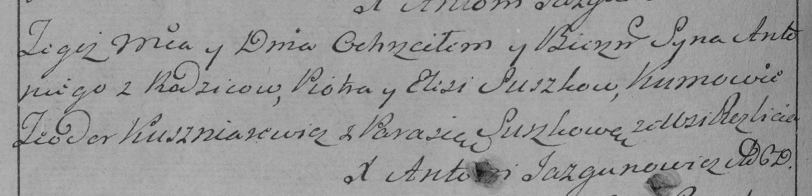 X Antoni Jazgunowicz
Tegoż Mca y Dnia Ochrzciłem y Bierzm Syna Anto
niego z Rodzicow, Piotra y Elisi Suszkow, Kumowie
Teodor Kuszniarewicz z Parasią Suszkową ze Wsi
X Antoni Jazgunowicz